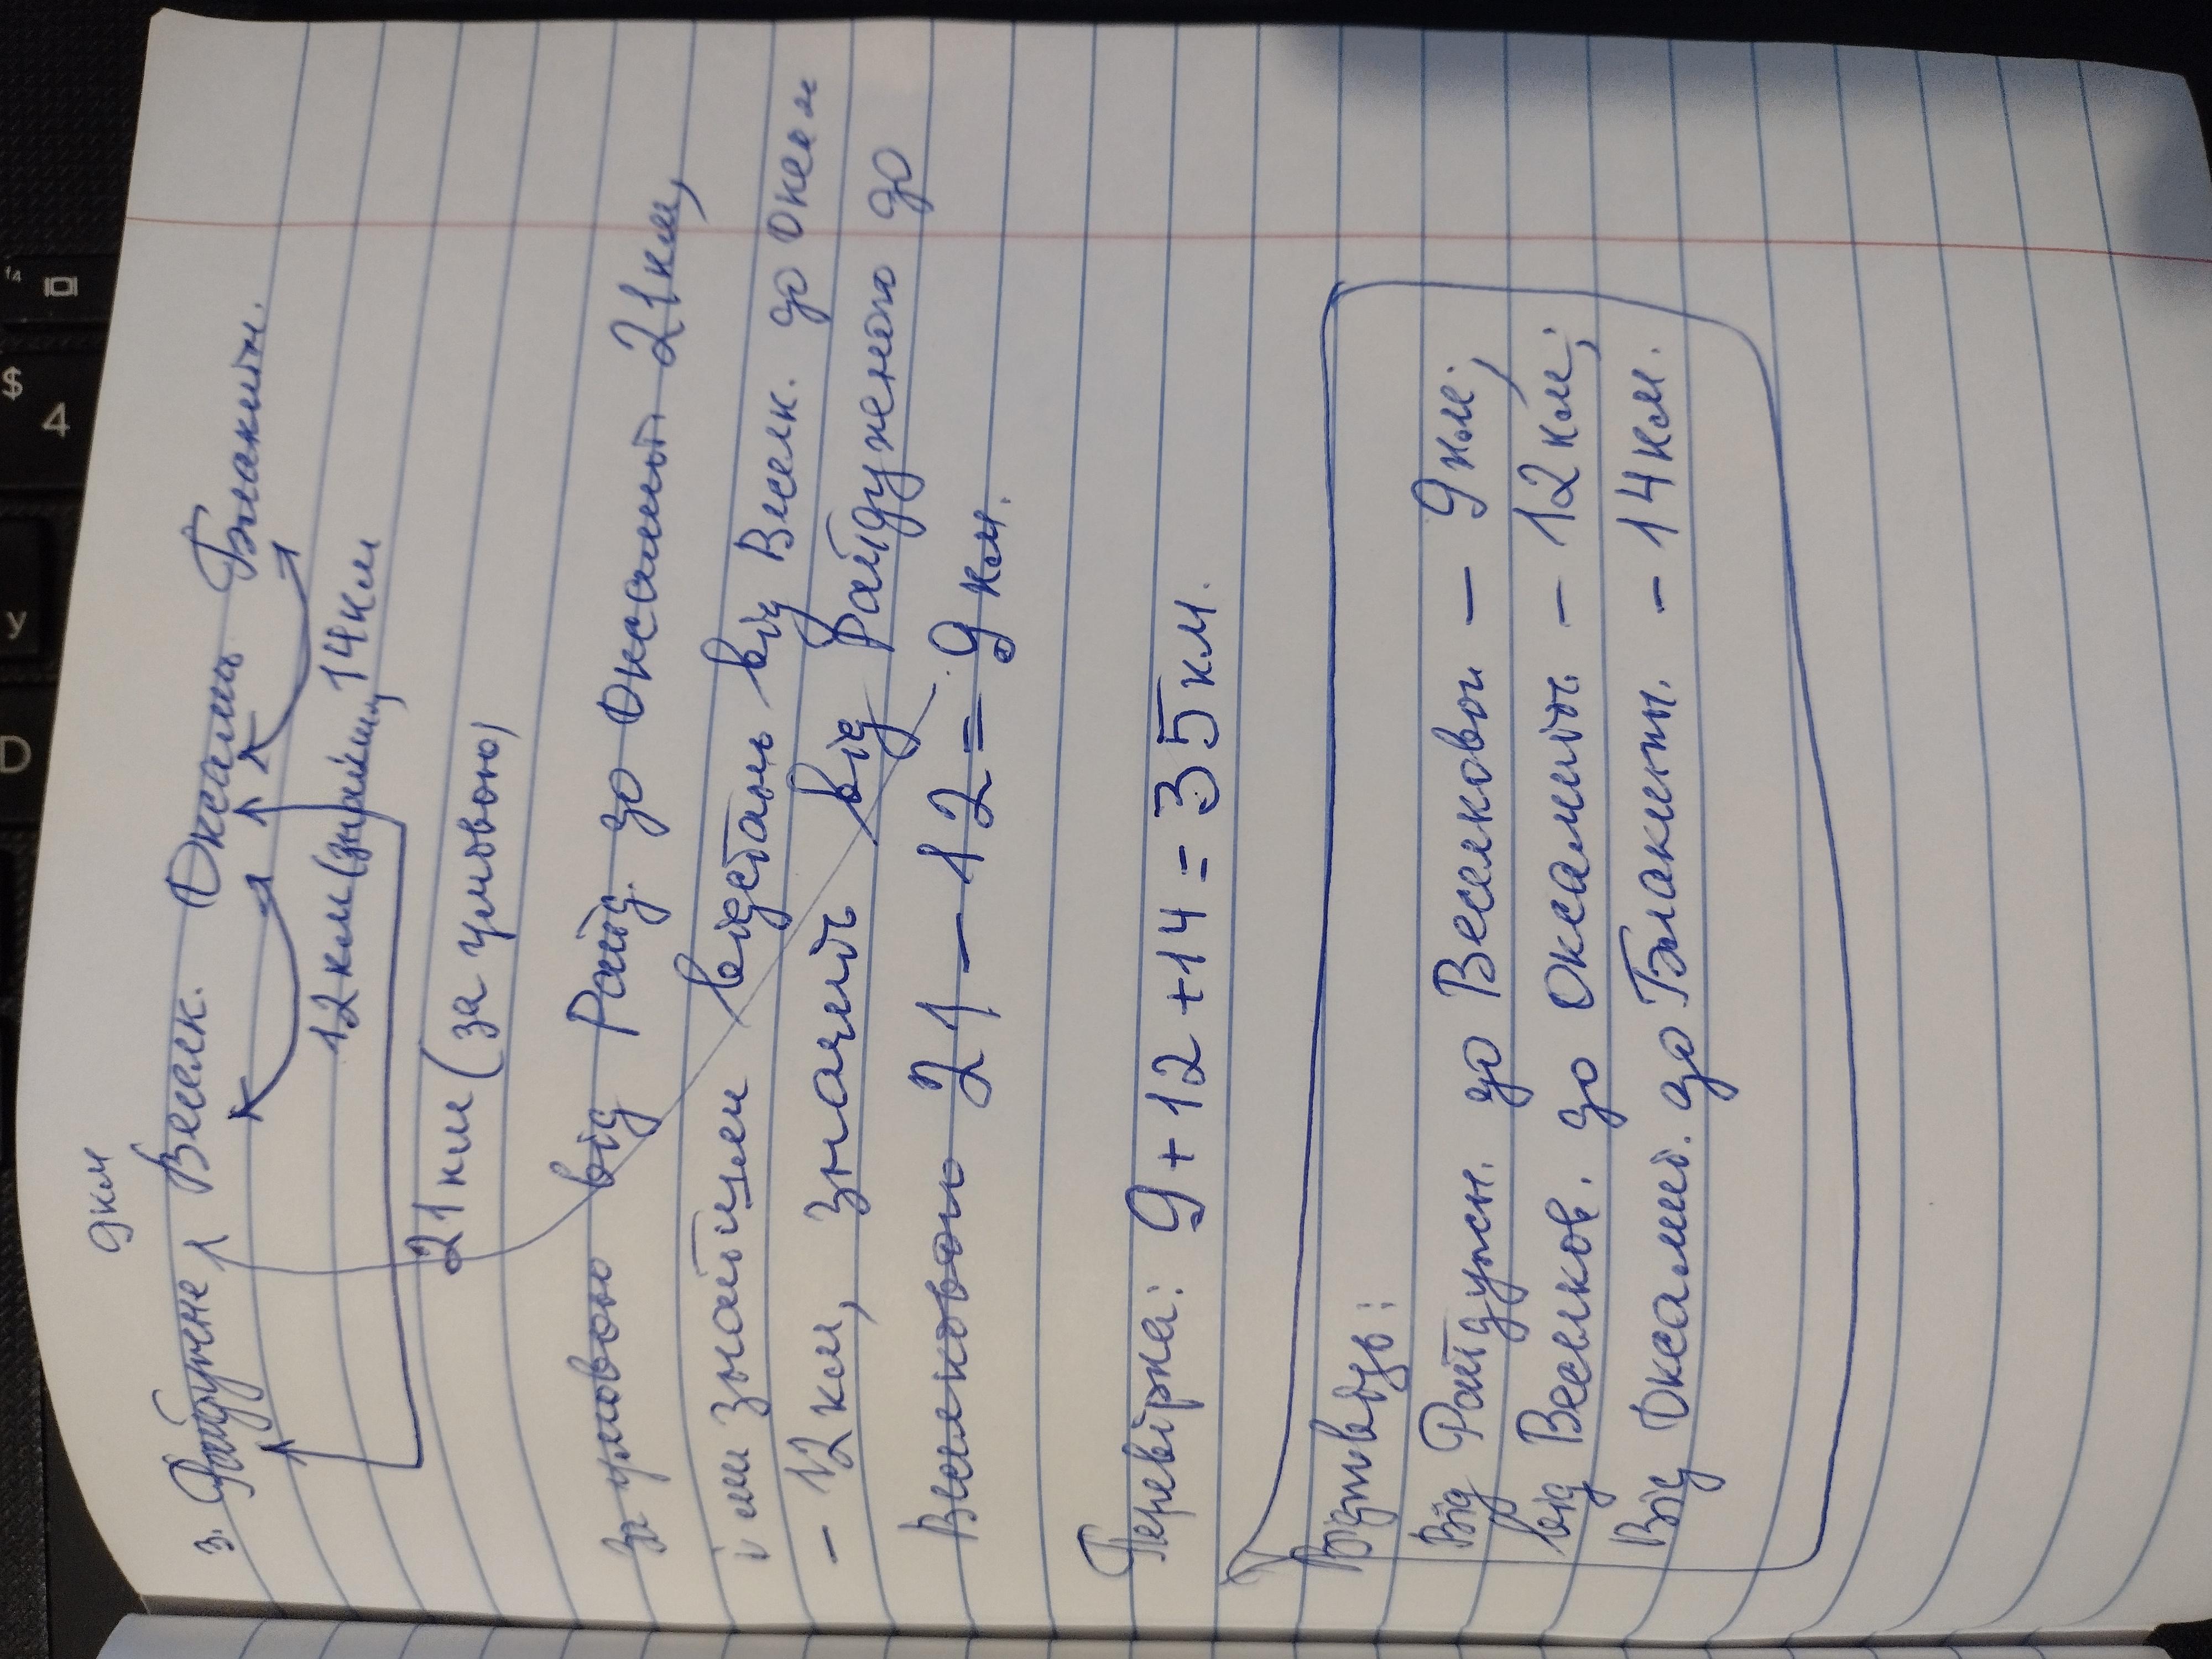 9 км
3. Райдужне Веселк. Оксамит Блакитн.
12 км (знайшли) 14 км
21 км (за умовою)
За умовою від Райд. до Оксамит 21 км,
і ми знайшли відстань від Веселк. до Оксам
- 12 км, значить від Райдужного до
Веселкового 21 - 12 = 9 км.
Перевірка: 9 + 12 + 14 = 35 км.
Відповідь:
Від Райдужн. до Веселкови - 9 км;
від Веселков. до Оксамит. - 12 км;
Від Оксамит. до Блакитн. - 14 км.